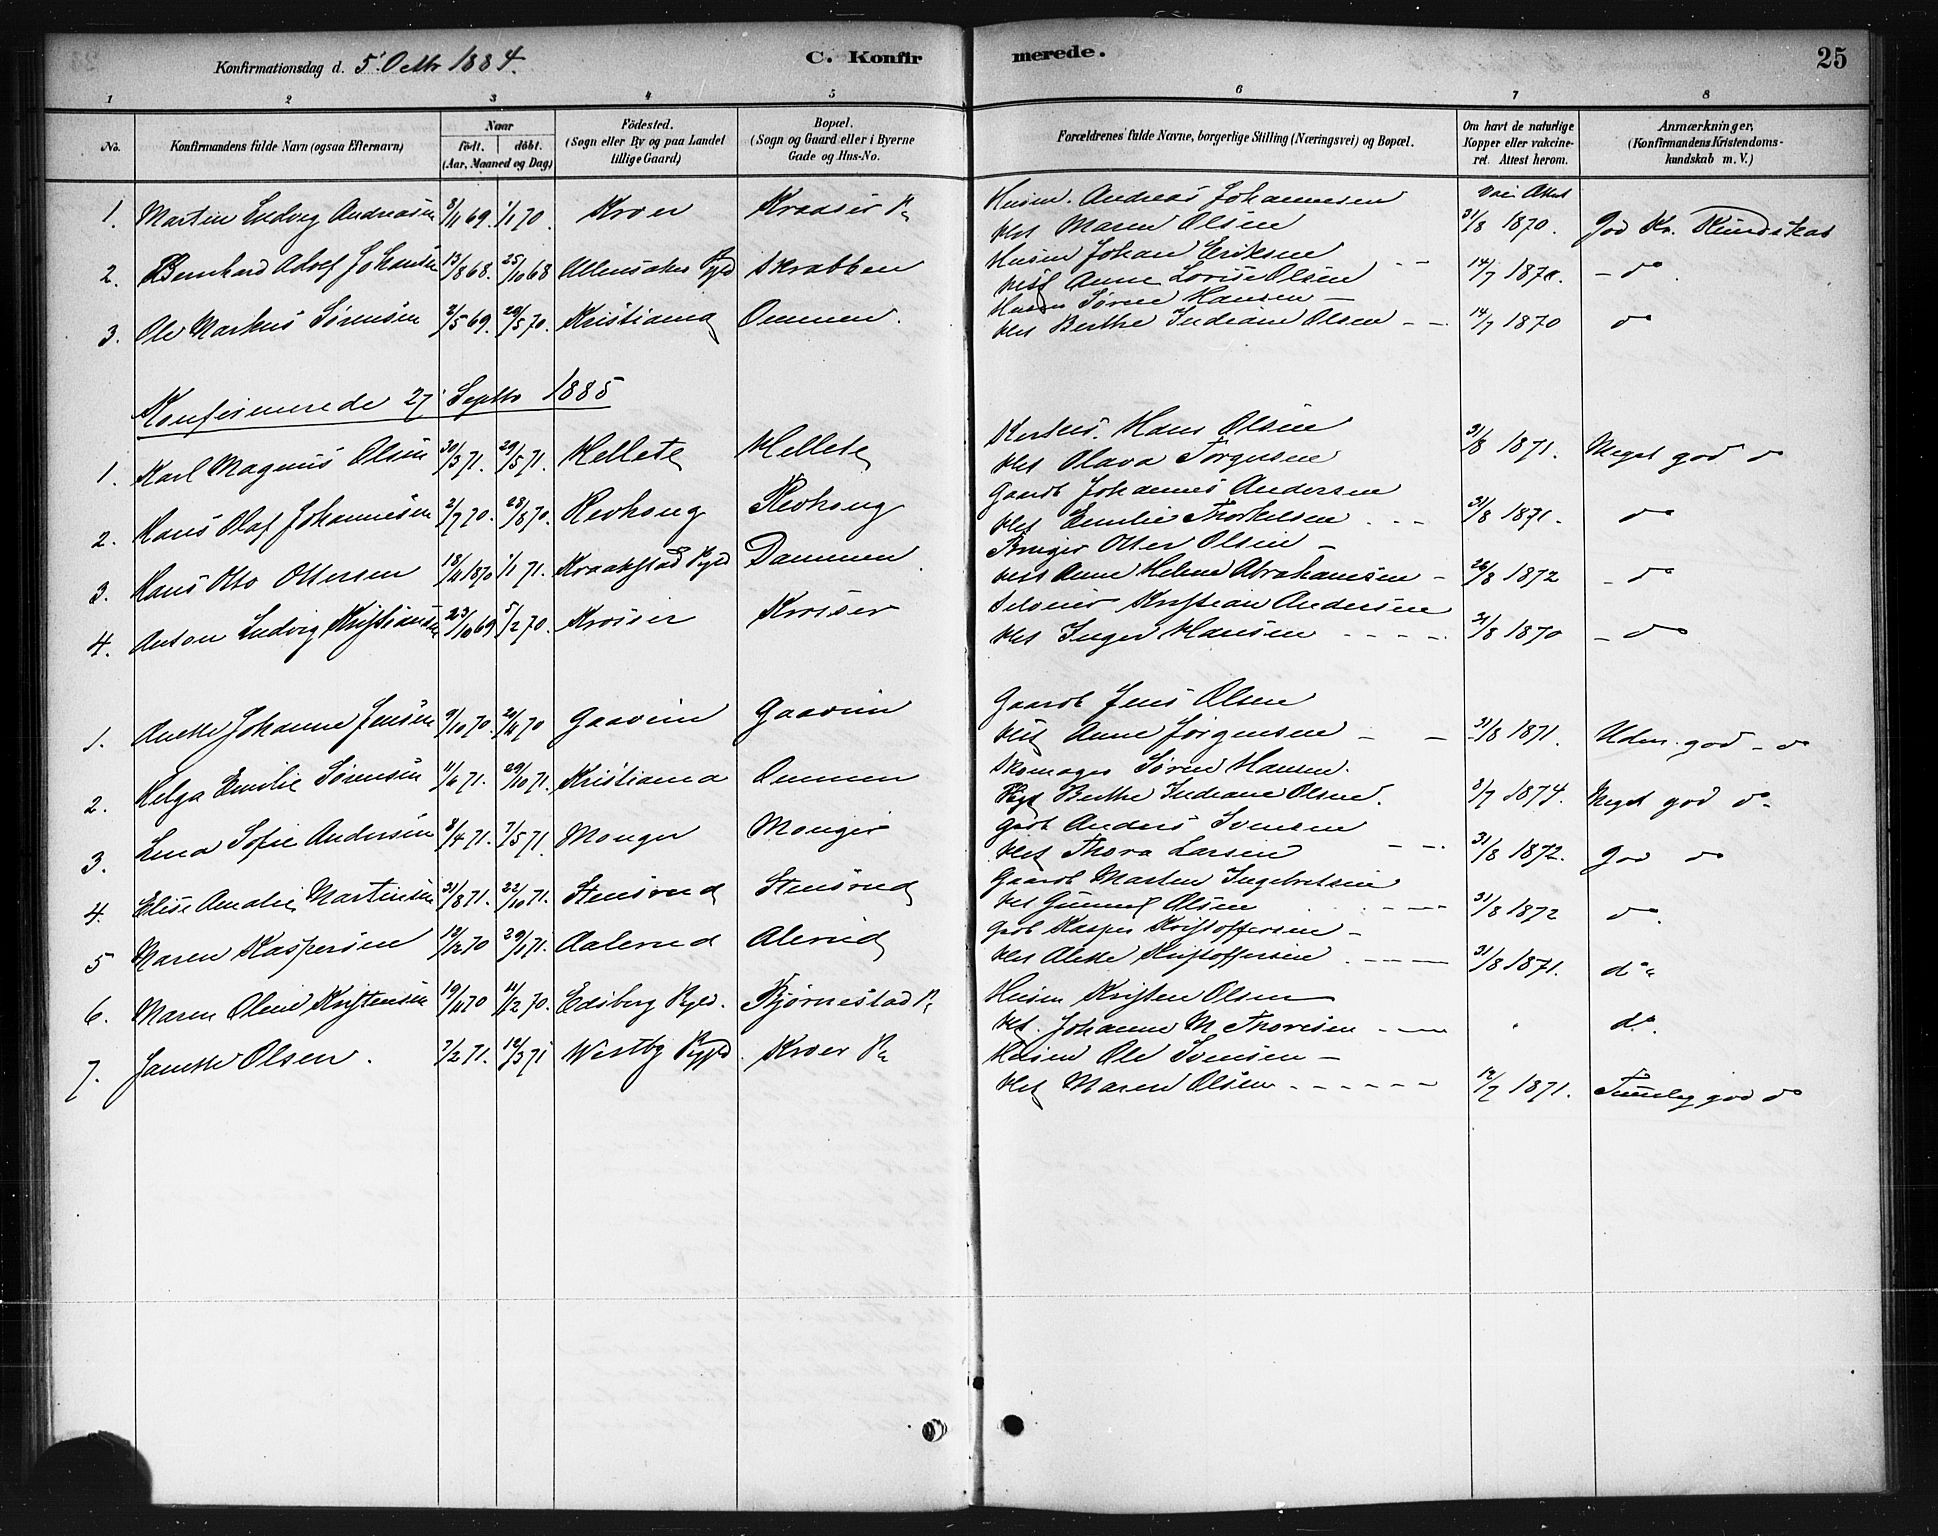 Konfirmationsdag d. 5' Octbr 1884. C. Konfirmerede. 25
1 2 3 4 5 6 7 8
No. Konfirmandens fulde Navn (ogsaa Efternavn) Naar födt. döbt. (Aar, Maaned og Dag) Födested. (Sogn eller By og paa Landet tillige Gaard) Bopæl. (Sogn og Gaard eller i Byerne Gade og Hus-No. Forældrenes fulde Navne, borgerlige Stilling (Næringsvei) og Bopæl. Om havt de naturlige Kopper eller vakcineret. Attest herom. Anmærkninger. (Konfirmandens Kristendomskundskab m. V.)
1. Martin Ludvig Andreasen 8/11 69. 1/1 70. Kroer Husm. Andreas Johannesen
Maren Olsen 31/8 1870. God Kr. Kundskab
2. Bernhard Adolf Johansen 13/8 68. 25/10 68 Ullensaker Skrabben Husm Johan Eriksen
Anne Lovise Olsen 14/7 1870. - do
3. Ole Markus Sørensen 2/5 69. 29/5 70. Kristiania Ommen. Husm Søren Hansen -
Berthe Indiane Olsen - - 14/7 1870 do
Konfirmerede 27' Septbr 1885
1. Karl Magnus Olsen 30/3 71. 29/5 71. Kellete Kellete Hans Olsen
Olava Torgersen 31/8 1871. Meget god do
2. Hans Olaf Johannesen 2/7 70. 28/8 70. Revhoug Revhoug Gaardb Johannes Andersen
Emilie Thorkelsen - - 31/8 1871. do
3. Hans Otto Ottersen 18/11 1870 1/1 71. Kraakstad Dammen Bruger Otter Olsen -
Anne Helene Abrahamsen - 26/8 1872 - do
4. Anton Ludvig Kristiansen 23/10 69 5/2 70. Krosser Krosser Kristian Andersen
Inger Hansen - - - - 31/8 1870 - do
1. Anette Johanne Jensen 9/10 70. 20/11 70 Gaaveim Gaaveim Gaardb Jens Olsen
Anne Jørgensen - - 31/8 1871. Udm. god - do
2. Helga Emilie Sørensen 11/6 71. 29/10 71. Kristiania Ommen Skomager Søren Hansen.
Berthe Indiane Olsen. 3/7 1874. Meget god do
3. Lina Sofie Andersen 8/4 71. 7/5 71. Monger Monger Anders Svensen
Thora Larsen - - 31/8 1872. God do
4. Elise Amalie Martinsen 31/8 71. 22/10 71. Stensrud Stensrud Gaardb Marten Ingebretsen
Gunnel Olsen - - - 31/8 1872 do
5 Maren Kaspersen 10/12 70 29/1 71. Aalerud Alerud Kasper Kristoffersen -
Alette Kristoffersen. - - - 31/8 1871. do
6. Maren Oline Kristensen 19/11 70 11/12 70. Edsberg Bjørnestad Husm Kristen Olsen
Johanne M. Thoresen - - - do.
7. Janette Olsen. 7/2 71. 19/3 71 Westby Kroer Husm Ole Svensen -
Maren Olsen - - - - - 12/7 1871. Temmelig god do